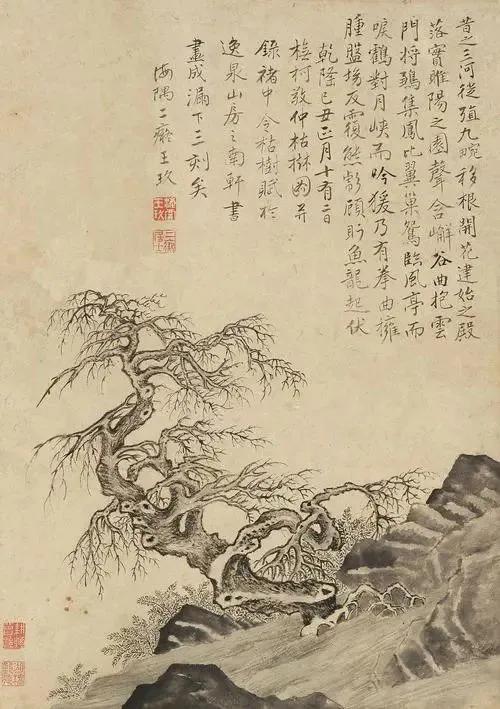 昔之三河徙殖九畹移根開花建始之殿
落實睢陽之園聲含嶰谷曲抱雲
門將鶵集鳳比翼巢鴛臨風亭而
唳鶴對月峽而吟猨乃有拳曲擁
腫盤坳反覆熊彪顧盻魚龍起伏
乾隆己丑正月十有二日
橅柯敬仲枯樹圖并
錄褚中令枯樹賦於
逸泉山房之南軒書
畫成漏下三刻矣
海隅二癡王玖